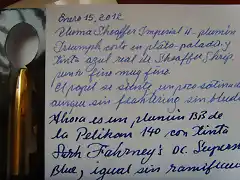 Enero 15, 2012
Pluma Sheaffer Imperial IV- plumín
Triumph corto en plata-paladio y
tinta azul real de Sheaffer Skrip,
punto fino muy fino.
El papel se siente un poco satinado
aunque sin feathering sin bleed
Ahora es un plumín BB de
la Pelikan 140 con tinta
Fahrney's DC. Supreme
Blue, igual sin